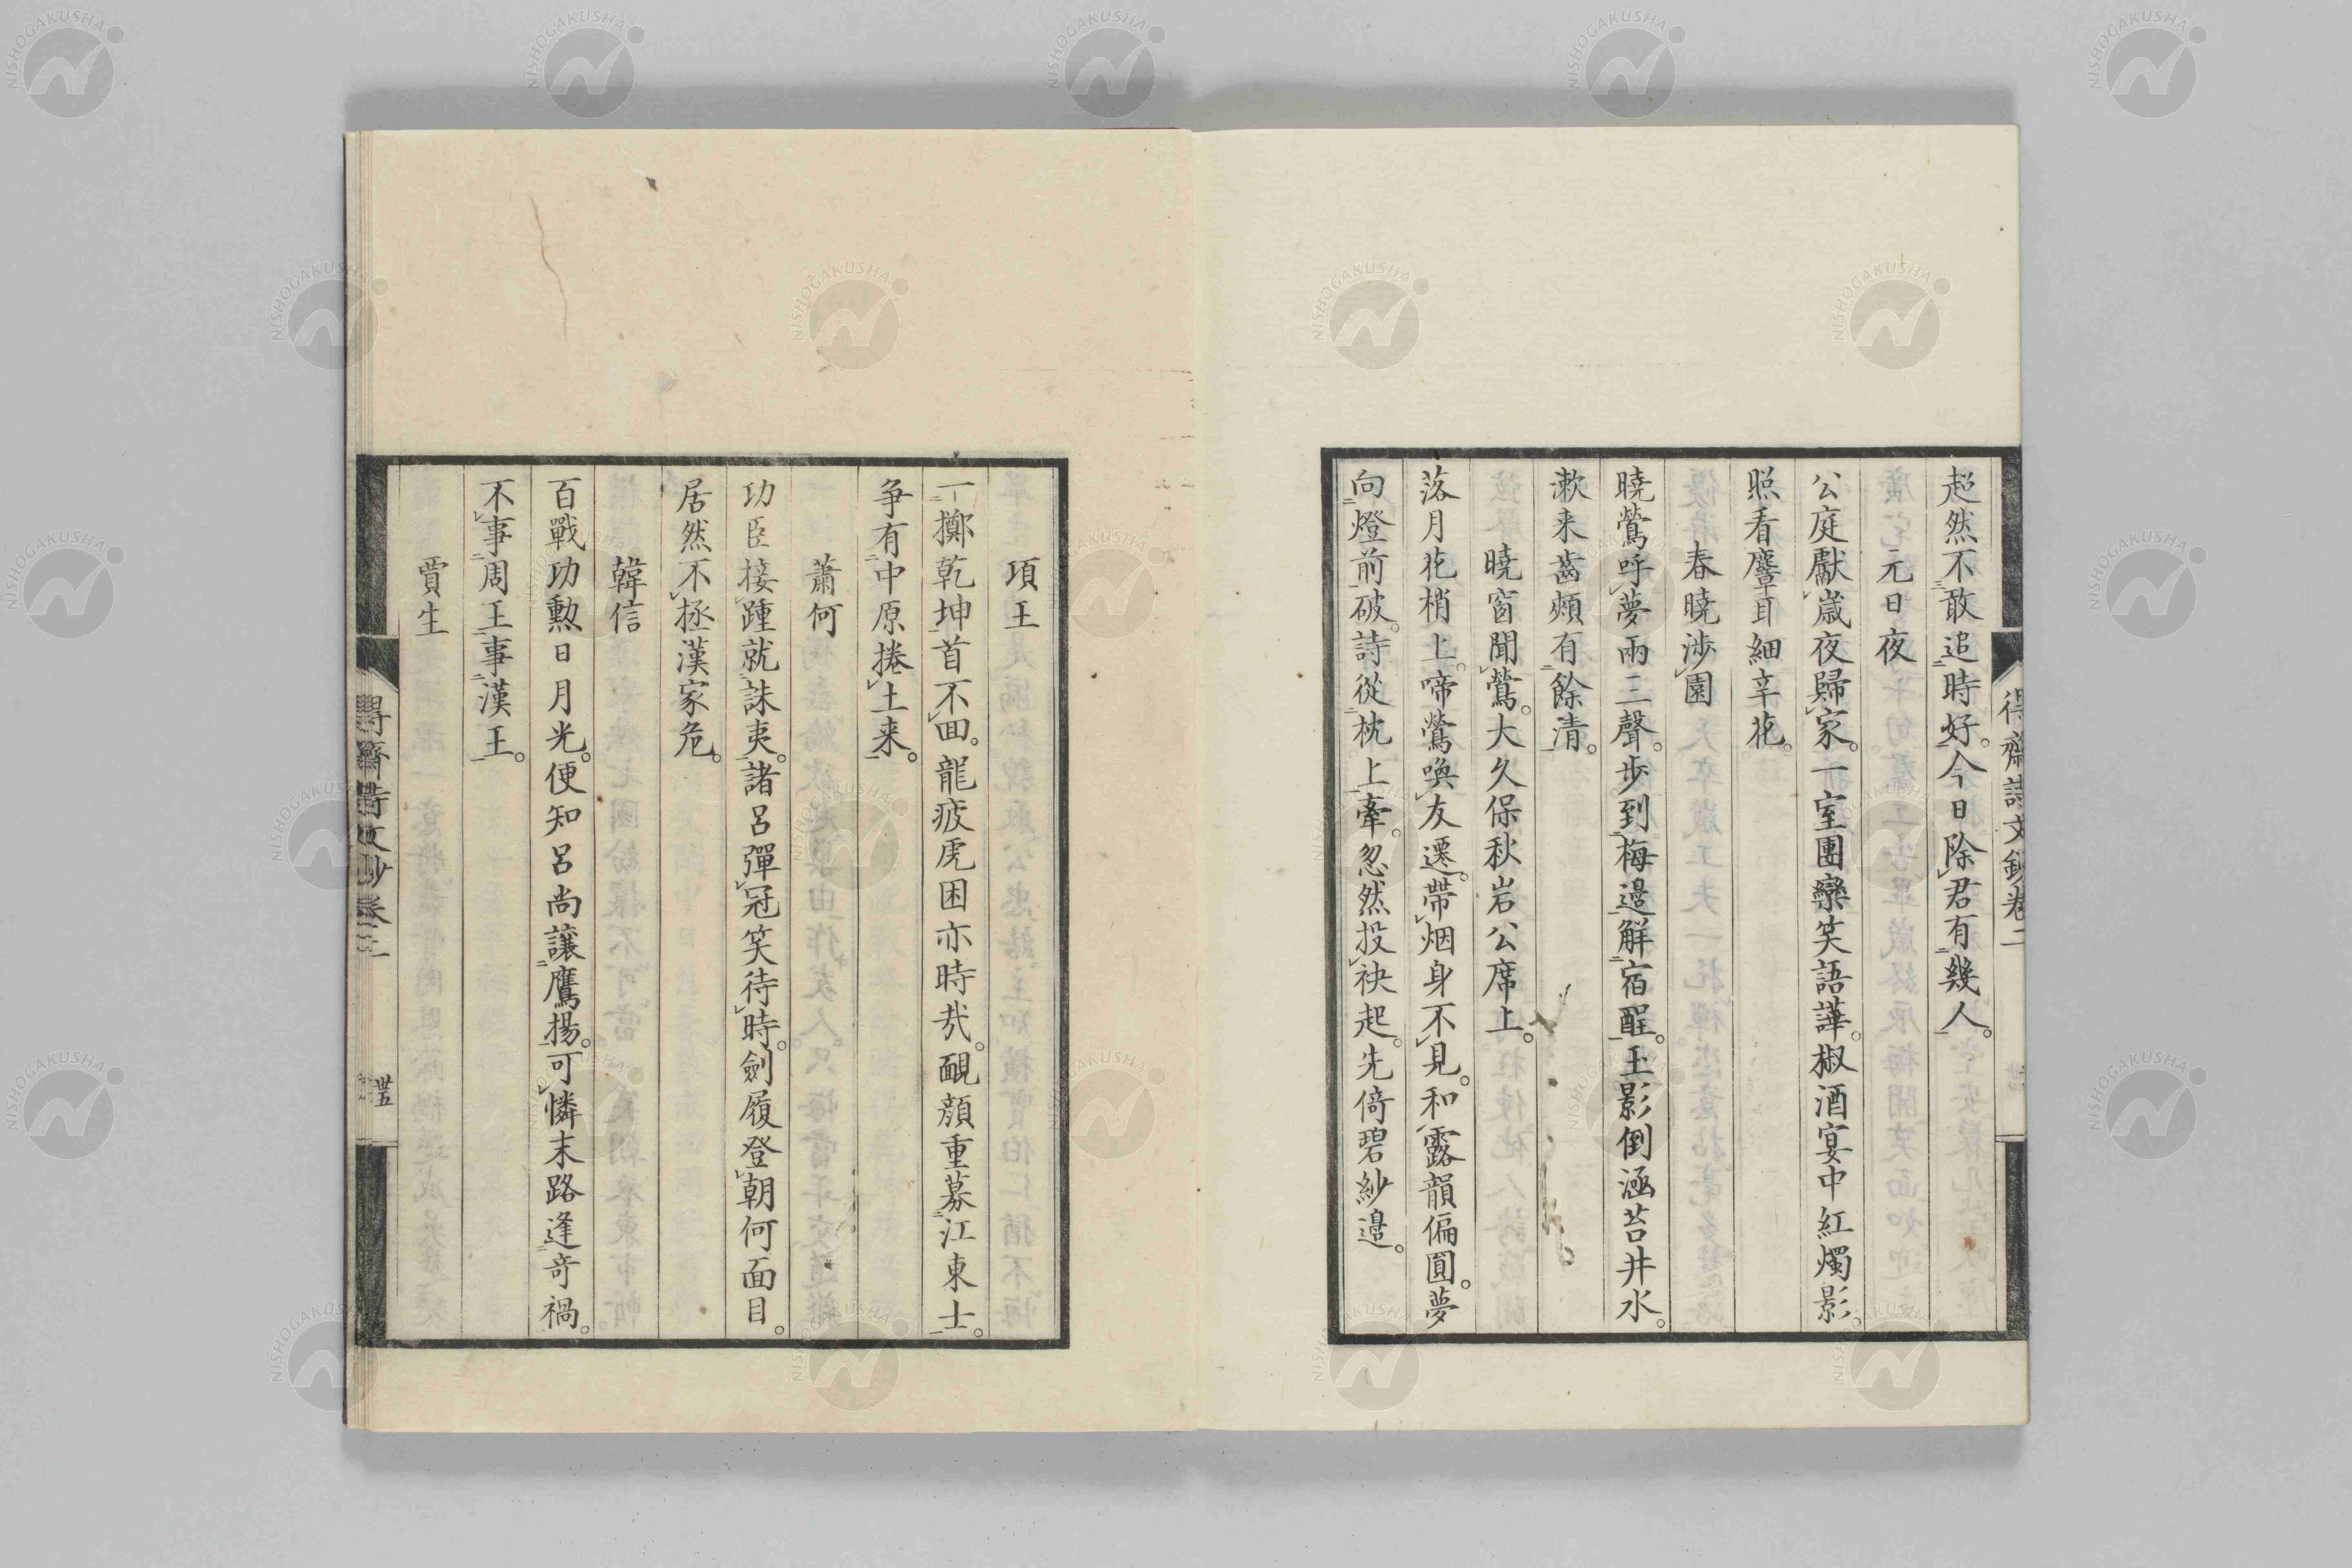 超然不敢追時好。今日除君有幾人。
元日夜
公庭獻歳夜歸家。一室團欒笑語譁。椒酒宴中紅燭影。
照看麞耳細辛花。
春曉渉園
曉鶯呼夢兩三聲。歩到梅邊解宿酲。玉影倒涵苔井水。
漱来齒頰有餘清。
曉窗聞鶯。大久保秋岩公席上。
落月花梢上。啼鶯喚友遷。帶烟身不見。和露韻偏圓。夢
向燈前破。詩從枕上牽。忽然投袂起。先倚碧紗邊。
得齋詩文鈔卷二
項王
一擲乾坤首不回。龍疲虎困亦時哉。靦顔重募江東士。
爭有中原捲土来。
蕭何
功臣接踵就誅夷。諸呂彈冠笑待時。劍履登朝何面目。
居然不拯漢家危。
韓信
百戰功勲日月光。便知呂尚讓鷹揚。可憐末路逢奇禍。
不事周王事漢王。
賈生
卅五
NISHOGAKUSHA